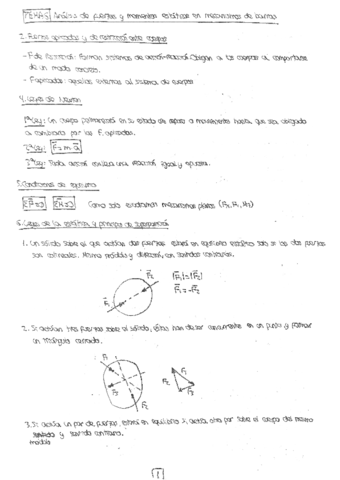 TEMA 5: Análisis de fuerzas y momentos estáticos en mecanismos de barras
2. Fuerzas aplicadas y de restricción entre cuerpos
- F de restricción: forman sistemas de acción-reacción. Obligan a los cuerpos a comportarse
de un modo concreto.
- F aplicadas: aquellas externas al sistema de cuerpos
4. Leyes de Newton
1ª Ley: Un cuerpo permanecerá en su estado de reposo o movimiento hasta que sea obligado
a cambiarlo por las F. aplicadas.
2ª Ley: F = m a
3ª Ley: Toda acción conlleva una reacción igual y opuesta.
5. Condiciones de equilibrio
ΣF=0 ΣM=0 Como solo estudiamos mecanismos planos
6. Leyes de la estática y principio de
1. Un sólido sobre el que actúan dos fuerzas estará en equilibrio estático solo si las dos fuerzas
son colineales. Mismo módulo y dirección, con sentidos contrarios.
F₂
|F₁|=|F₂|
F₁=-F₂
F₁
2. Si actúan tres fuerzas sobre el sólido, éstas han de ser concurrentes en un punto y formar
un triángulo cerrado.
F₁
F₃
F₂
F₁
F₃
F₂
3. Si actúa un par de fuerzas, estará en equilibrio si actúa otro par sobre el cuerpo del mismo
y sentido contrario.
módulo
1